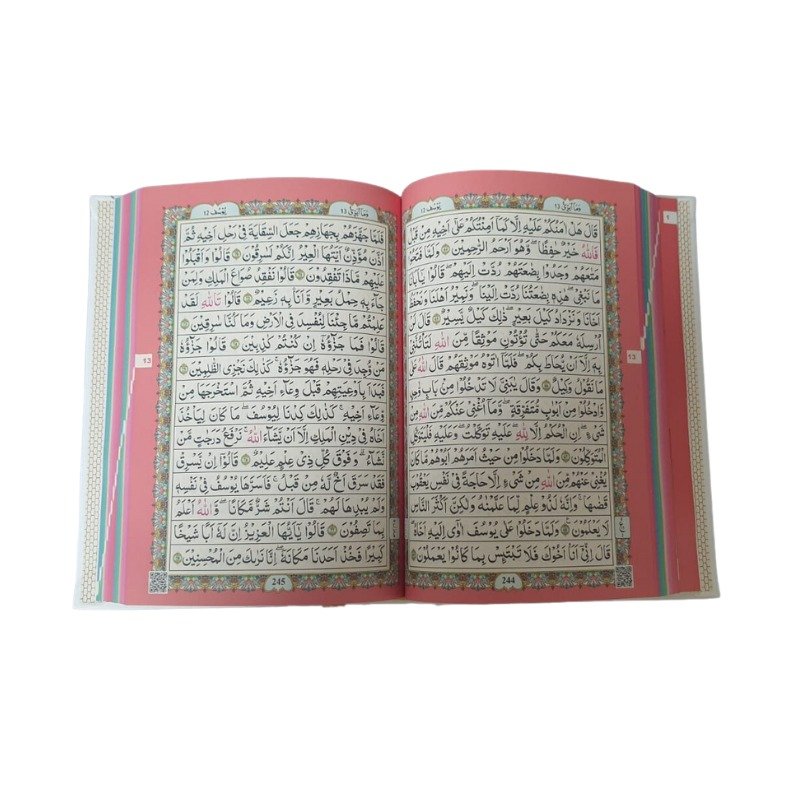 وَمَآ اُبَرِّئُ 13 یُوْسُف 12
قَالَ هَلْ اٰمَنُكُمْ عَلَيْهِ اِلَّا كَمَآ اَمِنْتُكُمْ عَلٰٓى اَخِيْهِ مِنْ قَبْلُ
فَاللّٰهُ خَيْرٌ حٰفِظًا ۪ وَّهُوَ اَرْحَمُ الرّٰحِمِيْنَ ۝ وَلَمَّا فَتَحُوْا
مَتَاعَهُمْ وَجَدُوْا بِضَاعَتَهُمْ رُدَّتْ اِلَيْهِمْ ؕ قَالُوْا يٰٓاَبَانَا
مَا نَبْغِيْ ؕ هٰذِهٖ بِضَاعَتُنَا رُدَّتْ اِلَيْنَا ۚ وَنَمِيْرُ اَهْلَنَا وَنَحْفَظُ
اَخَانَا وَنَزْدَادُ كَيْلَ بَعِيْرٍ ؕ ذٰلِكَ كَيْلٌ يَّسِيْرٌ ۝ قَالَ لَنْ
اُرْسِلَهٗ مَعَكُمْ حَتّٰى تُؤْتُوْنِ مَوْثِقًا مِّنَ اللّٰهِ لَتَاْتُنَّنِيْ
بِهٖٓ اِلَّآ اَنْ يُّحَاطَ بِكُمْ ۚ فَلَمَّآ اٰتَوْهُ مَوْثِقَهُمْ قَالَ اللّٰهُ عَلٰى
مَا نَقُوْلُ وَكِيْلٌ ۝ وَقَالَ يٰبَنِيَّ لَا تَدْخُلُوْا مِنْۢ بَابٍ وَّاحِدٍ
وَّادْخُلُوْا مِنْ اَبْوَابٍ مُّتَفَرِّقَةٍ ؕ وَمَآ اُغْنِيْ عَنْكُمْ مِّنَ اللّٰهِ مِنْ
شَيْءٍ ؕ اِنِ الْحُكْمُ اِلَّا لِلّٰهِ ؕ عَلَيْهِ تَوَكَّلْتُ ۚ وَعَلَيْهِ فَلْيَتَوَكَّلِ
الْمُتَوَكِّلُوْنَ ۝ وَلَمَّا دَخَلُوْا مِنْ حَيْثُ اَمَرَهُمْ اَبُوْهُمْ ؕ مَا كَانَ
يُغْنِيْ عَنْهُمْ مِّنَ اللّٰهِ مِنْ شَيْءٍ اِلَّا حَاجَةً فِيْ نَفْسِ يَعْقُوْبَ
قَضٰىهَا ؕ وَاِنَّهٗ لَذُوْ عِلْمٍ لِّمَا عَلَّمْنٰهُ وَلٰكِنَّ اَكْثَرَ النَّاسِ
لَا يَعْلَمُوْنَ ۝ وَلَمَّا دَخَلُوْا عَلٰى يُوْسُفَ اٰوٰٓى اِلَيْهِ اَخَاهُ
قَالَ اِنِّيْٓ اَنَا اَخُوْكَ فَلَا تَبْتَئِسْ بِمَا كَانُوْا يَعْمَلُوْنَ ۝
244
13
1
وَمَآ اُبَرِّئُ 13 یُوْسُف 12
فَلَمَّا جَهَّزَهُمْ بِجَهَازِهِمْ جَعَلَ السِّقَايَةَ فِيْ رَحْلِ اَخِيْهِ ثُمَّ
اَذَّنَ مُؤَذِّنٌ اَيَّتُهَا الْعِيْرُ اِنَّكُمْ لَسٰرِقُوْنَ ۝ قَالُوْا وَاَقْبَلُوْا
عَلَيْهِمْ مَّاذَا تَفْقِدُوْنَ ۝ قَالُوْا نَفْقِدُ صُوَاعَ الْمَلِكِ وَلِمَنْ
جَآءَ بِهٖ حِمْلُ بَعِيْرٍ وَّاَنَا بِهٖ زَعِيْمٌ ۝ قَالُوْا تَاللّٰهِ لَقَدْ
عَلِمْتُمْ مَّا جِئْنَا لِنُفْسِدَ فِي الْاَرْضِ وَمَا كُنَّا سٰرِقِيْنَ ۝
قَالُوْا فَمَا جَزَآؤُهٗٓ اِنْ كُنْتُمْ كٰذِبِيْنَ ۝ قَالُوْا جَزَآؤُهٗ
مَنْ وُّجِدَ فِيْ رَحْلِهٖ فَهُوَ جَزَآؤُهٗ ؕ كَذٰلِكَ نَجْزِي الظّٰلِمِيْنَ ۝
فَبَدَاَ بِاَوْعِيَتِهِمْ قَبْلَ وِعَآءِ اَخِيْهِ ثُمَّ اسْتَخْرَجَهَا مِنْ
وِّعَآءِ اَخِيْهِ ؕ كَذٰلِكَ كِدْنَا لِيُوْسُفَ ؕ مَا كَانَ لِيَاْخُذَ
اَخَاهُ فِيْ دِيْنِ الْمَلِكِ اِلَّآ اَنْ يَّشَآءَ اللّٰهُ ؕ نَرْفَعُ دَرَجٰتٍ مَّنْ
نَّشَآءُ ؕ وَفَوْقَ كُلِّ ذِيْ عِلْمٍ عَلِيْمٌ ۝ قَالُوْٓا اِنْ يَّسْرِقْ
فَقَدْ سَرَقَ اَخٌ لَّهٗ مِنْ قَبْلُ ۚ فَاَسَرَّهَا يُوْسُفُ فِيْ نَفْسِهٖ
وَلَمْ يُبْدِهَا لَهُمْ ۚ قَالَ اَنْتُمْ شَرٌّ مَّكَانًا ۚ وَاللّٰهُ اَعْلَمُ
بِمَا تَصِفُوْنَ ۝ قَالُوْا يٰٓاَيُّهَا الْعَزِيْزُ اِنَّ لَهٗٓ اَبًا شَيْخًا
كَبِيْرًا فَخُذْ اَحَدَنَا مَكَانَهٗ ۚ اِنَّا نَرٰىكَ مِنَ الْمُحْسِنِيْنَ ۝
245
13